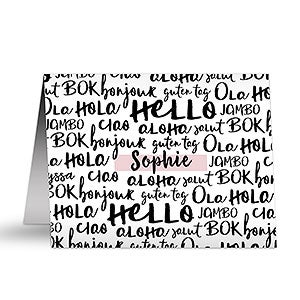 BOK ciao aloha salut BOK
bonjour guten tag Ola
Ola HOLA HELLO JAMBO
JAMBO ciao aloha salut BOK
BOK bonjour guten tag Ola
Ola HOLA Sophie JAMBO
aloha salut BOK
BOK bonjour guten tag Ola HOLA
Ola HOLA HELLO JAMBO ciao
JAMBO ciao aloha salut BOK
BOK bonjour guten tag Ola HOLA